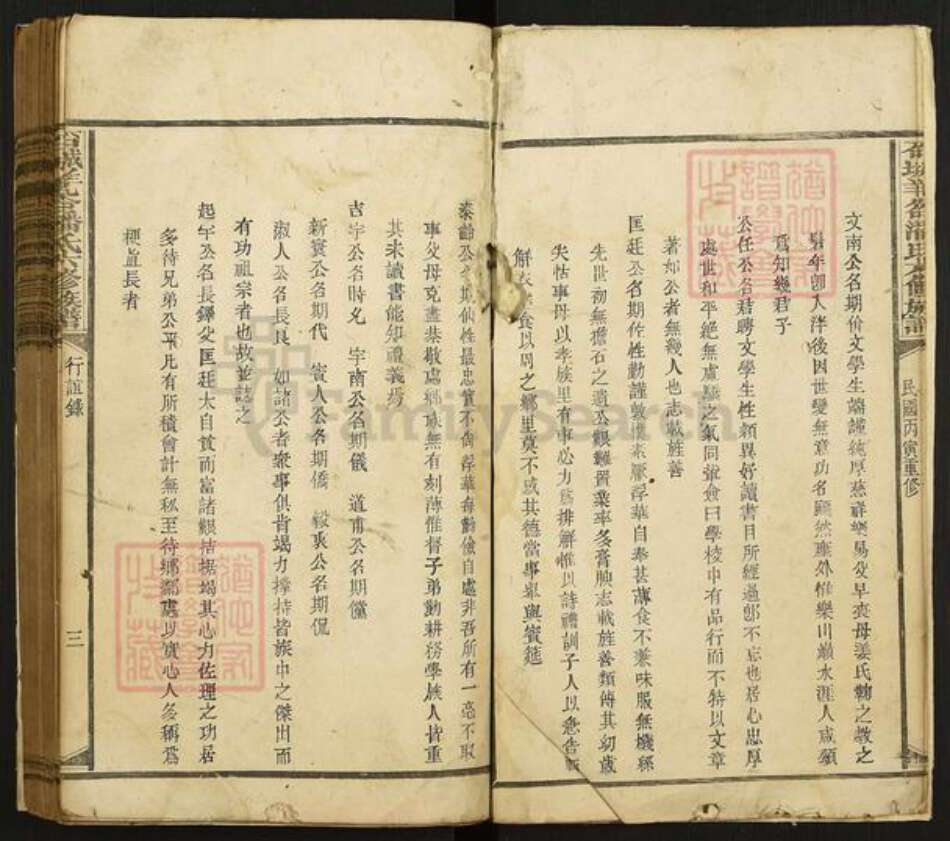 潘氏六修族譜
民國丙寅重修
文南公名期价文學生端謹純厚慈祥樂易父早喪母姜氏鞠之教之
年卽入泮後因世變無意功名顯然業外惟樂山巔水涯人咸頌
爲知幾君子
公任公名君聘文學生性穎異好讀書目所經過卽不忘也居心忠厚
處世和平絕無虛驕之氣同軰僉曰學校中有品行而不特以文章
著如公者無幾人也志載旌善
匡廷公名期作性勤謹敦樸素厭浮華自奉甚薄食不兼味服無
先世初無擔石之遺公艱難置業率多膏腴志載旌善類傳其幼歲
失怙事母以孝族里有事必力爲排解惟以詩禮訓子人以急告
解衣食以周之鄉里莫不感其德當事舉與賓筵
泰齡公名期仙性最忠實不尙浮華每勤儉自處非吾所有一毫不取
事父母克盡恭敬處鄉族無有刻薄惟督子弟勤耕務學族人皆重
其未讀書能知禮義焉
吉宇公名時 宇南公名期儀 道南公名期黨
新寰公名期代 賓人公名期僑 毅公名期侃
淑人公名長 如諸公者衆事俱肯竭力撐持皆族中之傑出而
有功祖宗者也故並誌之
起宇公名長鐸父匡廷太自貧而富諸艱拮据竭其心力佐理之功居
多待兄弟公平凡有所積會計無私至待鄉鄰處以實心人多稱爲
梗直長者
潘氏六修族譜
行誼錄
三
FamilySearch